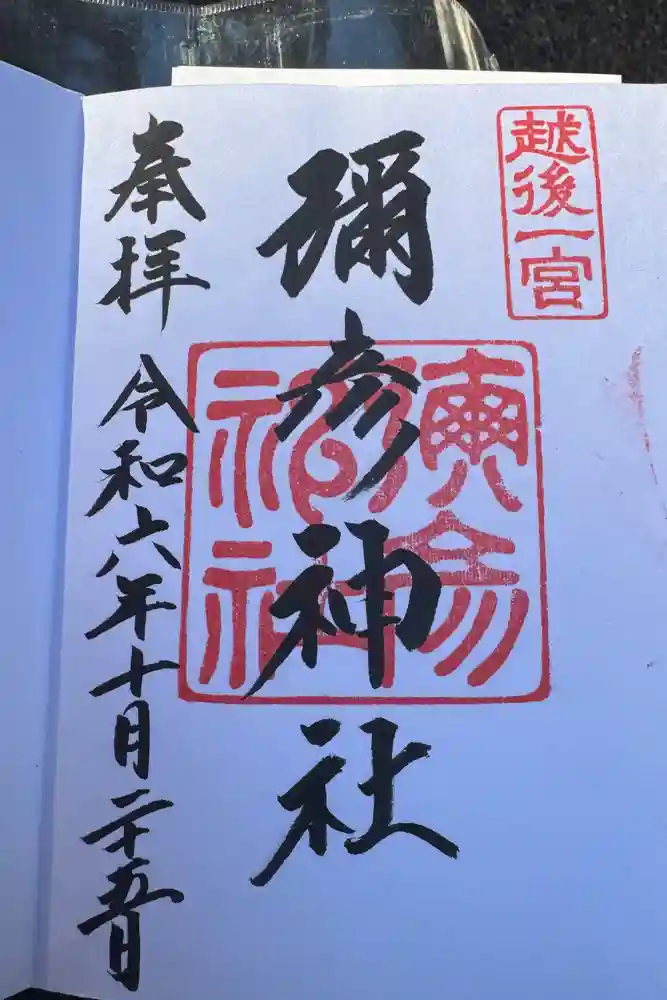 越後一宮
彌彦神社
奉拝
令和六年十月二十五日